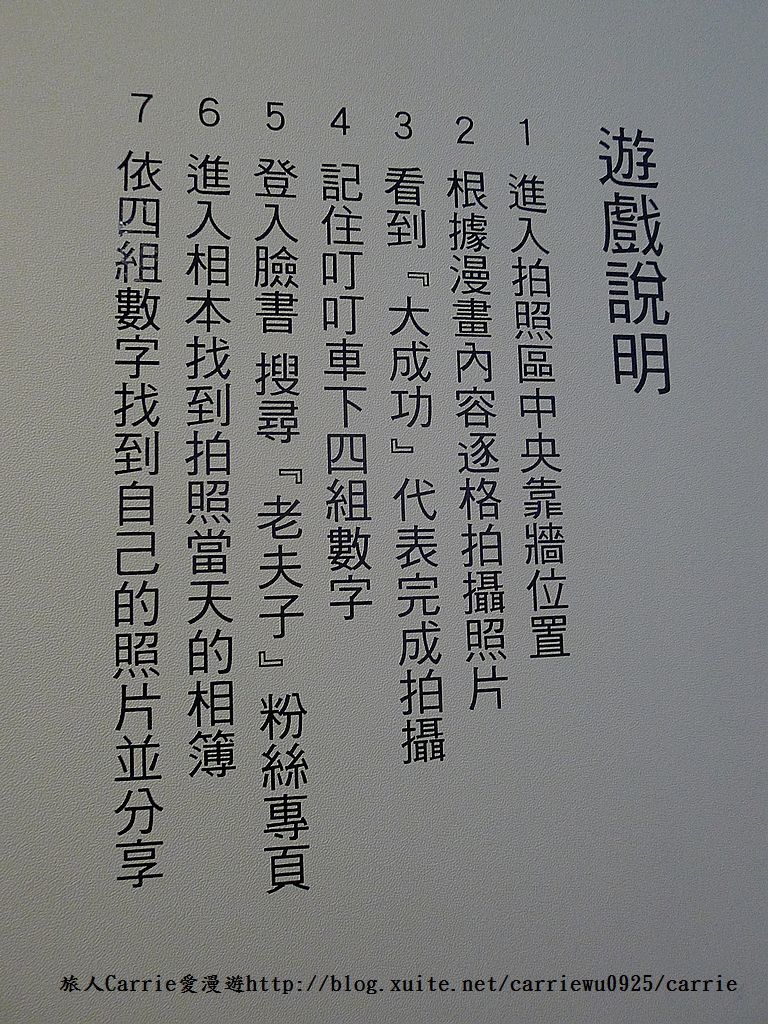 遊戲說明
1 進入拍照區中央靠牆位置
2 根據漫畫內容逐格拍攝照片
3 看到『大成功』代表完成拍攝
4 記住叮叮車下四組數字
5 登入臉書 搜尋『老夫子』粉絲專頁
6 進入相本找到拍照當天的相簿
7 依四組數字找到自己的照片並分享
旅人Carrie愛漫遊http://blog.xuite.net/carriewu0925/carrie